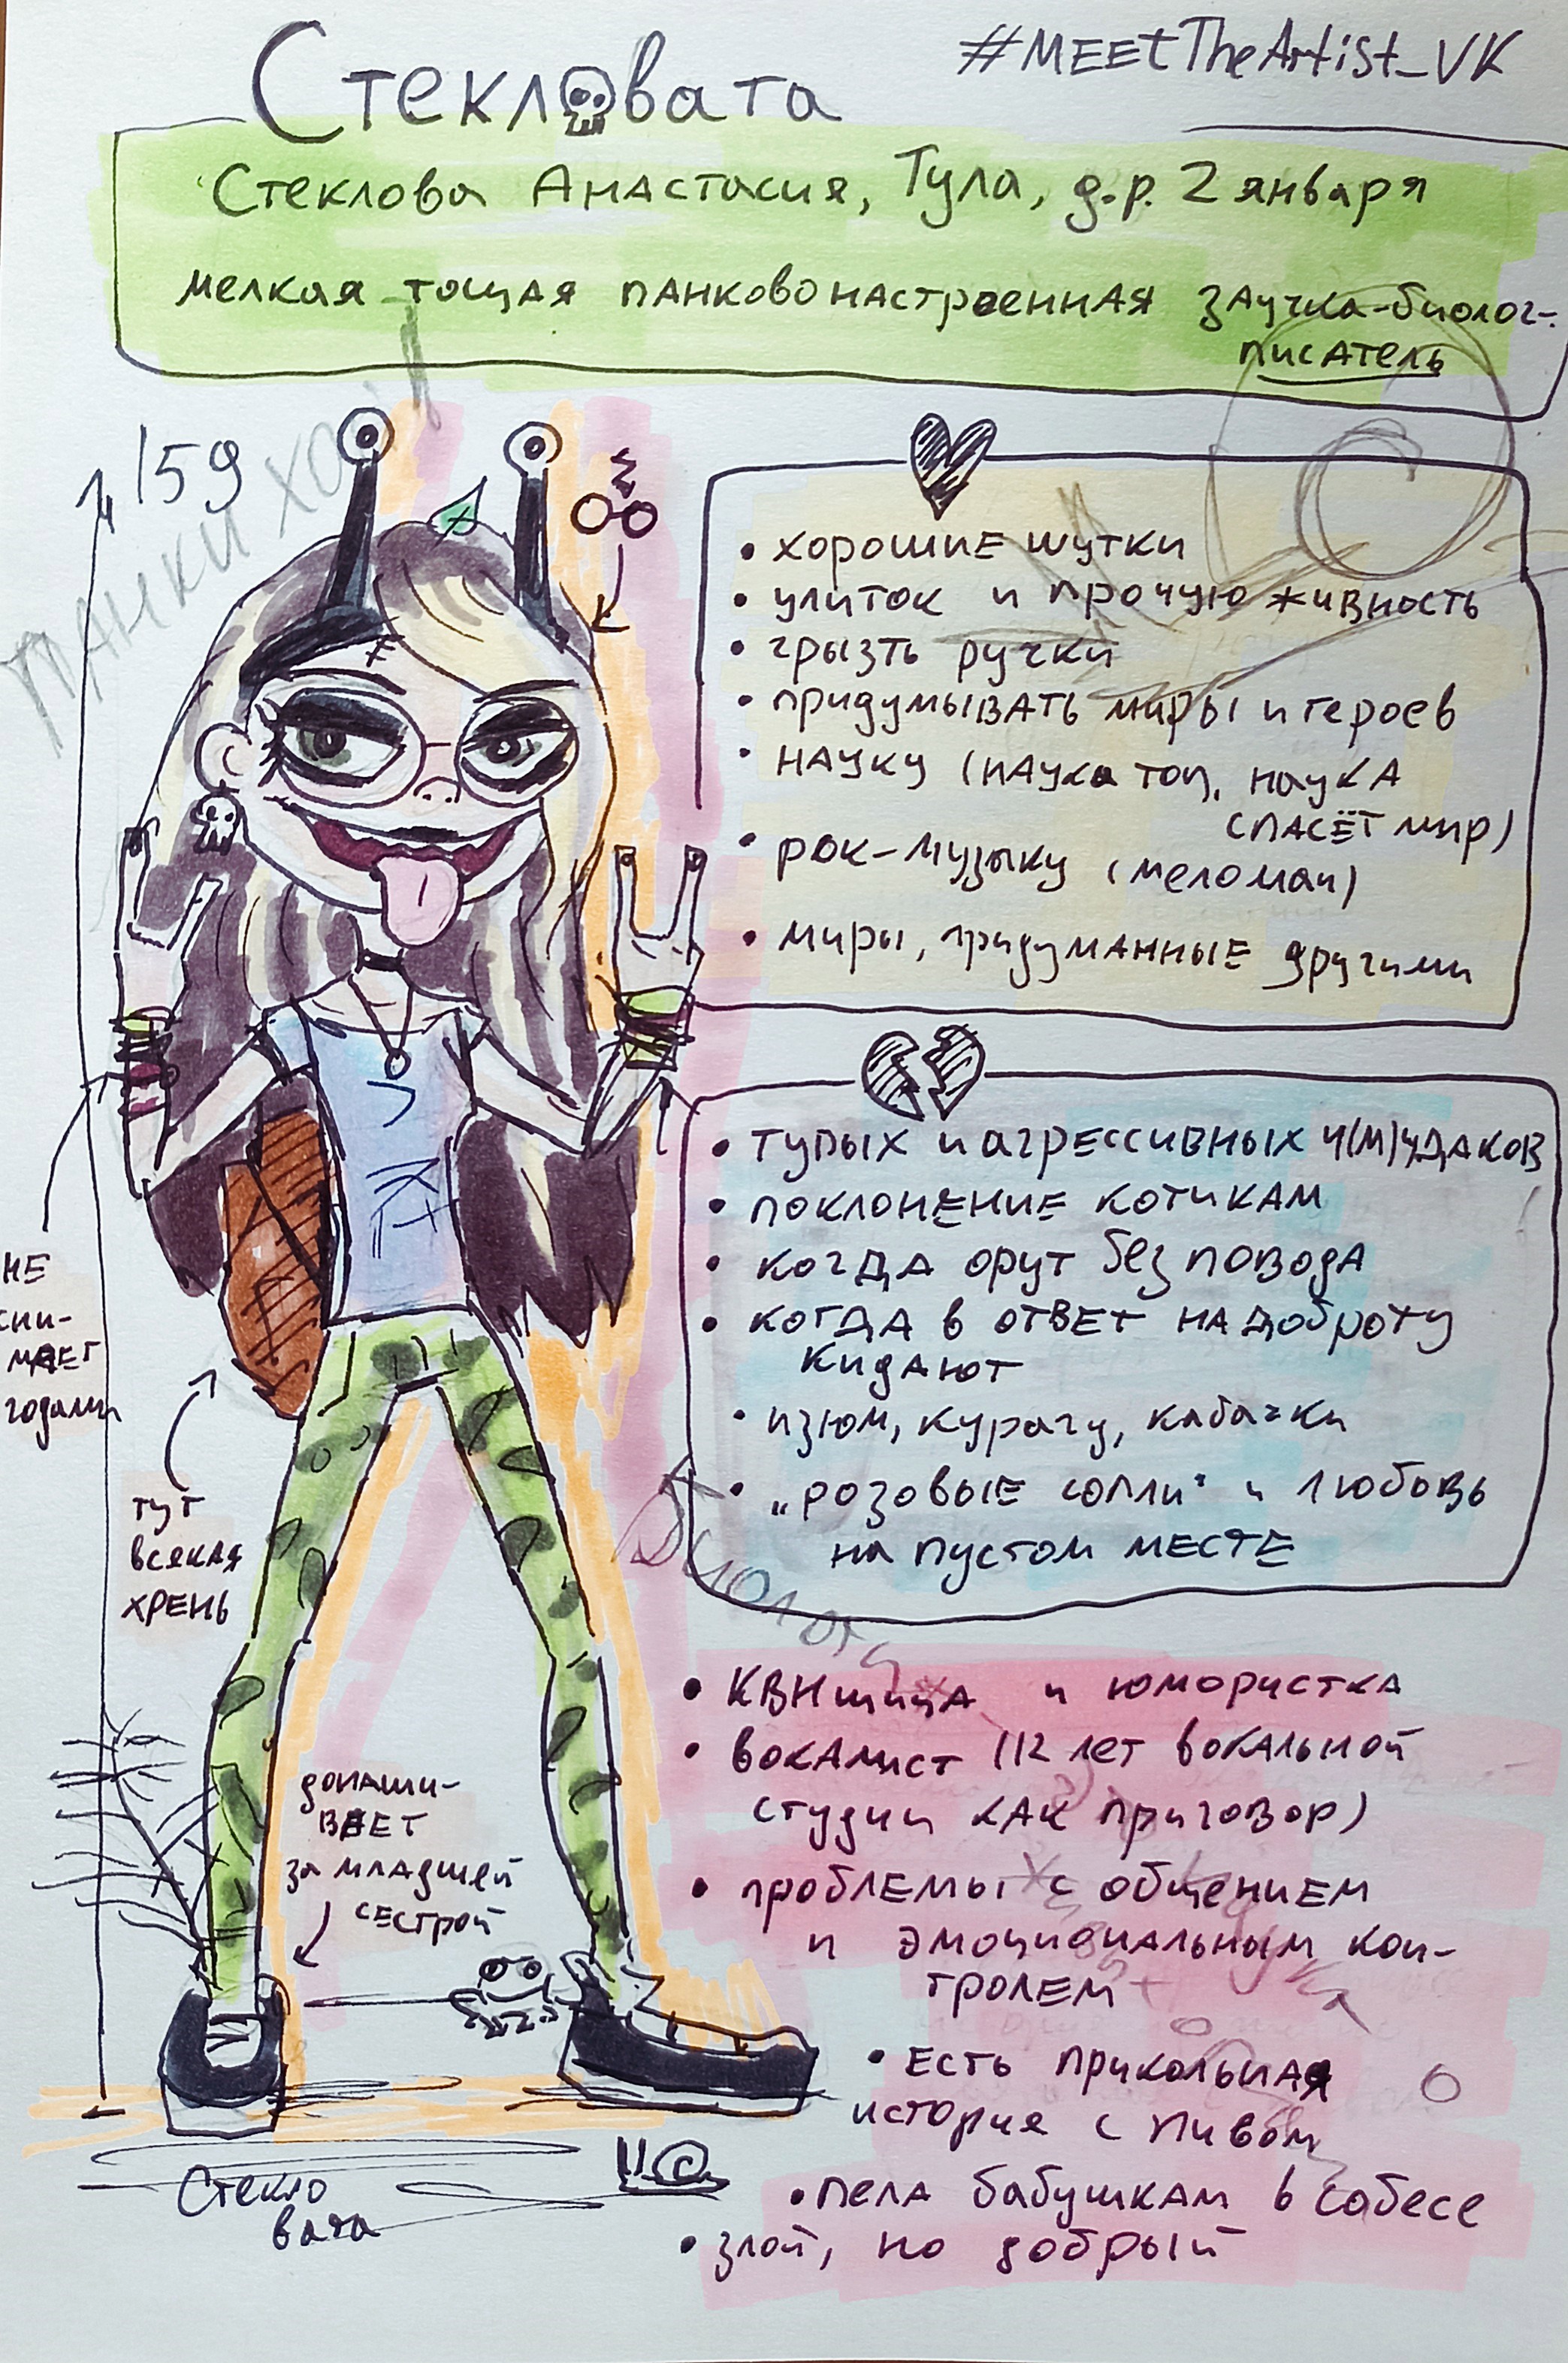 Стекловата
#MEEtTheArtist_VK
Стеклова Анастасия, Тула, д.р. 2 января
мелкая тощая панковонастроенная заучка-биолог-
писатель
159
ПАНКИ ХОЙ
• хорошие шутки
• улиток и прочую живность
• грызть ручки
• придумывать миры и героев
• науку (наука топ, наука
спасёт мир)
• рок-музыку (меломан)
• миры, придуманные другими
• тупых и агрессивных ч(м)удаков
• поклонение котикам
• когда орут без повода
• когда в ответ на доброту
кидают
• изюм, курагу, кабачки
• „розовые сопли" и любовь
на пустом месте
не
сни-
мает
годами
тут
всякая
хрень
донаши-
вает
за младшей
сестрой
• КВНщица и юмористка
• вокалист (12 лет вокальной
студии как приговор)
• проблемы с общением
и эмоциональным кон-
тролем
• есть прикольная
история с пивом
• пела бабушкам в собесе
• злой, но добрый
Стекло
вата